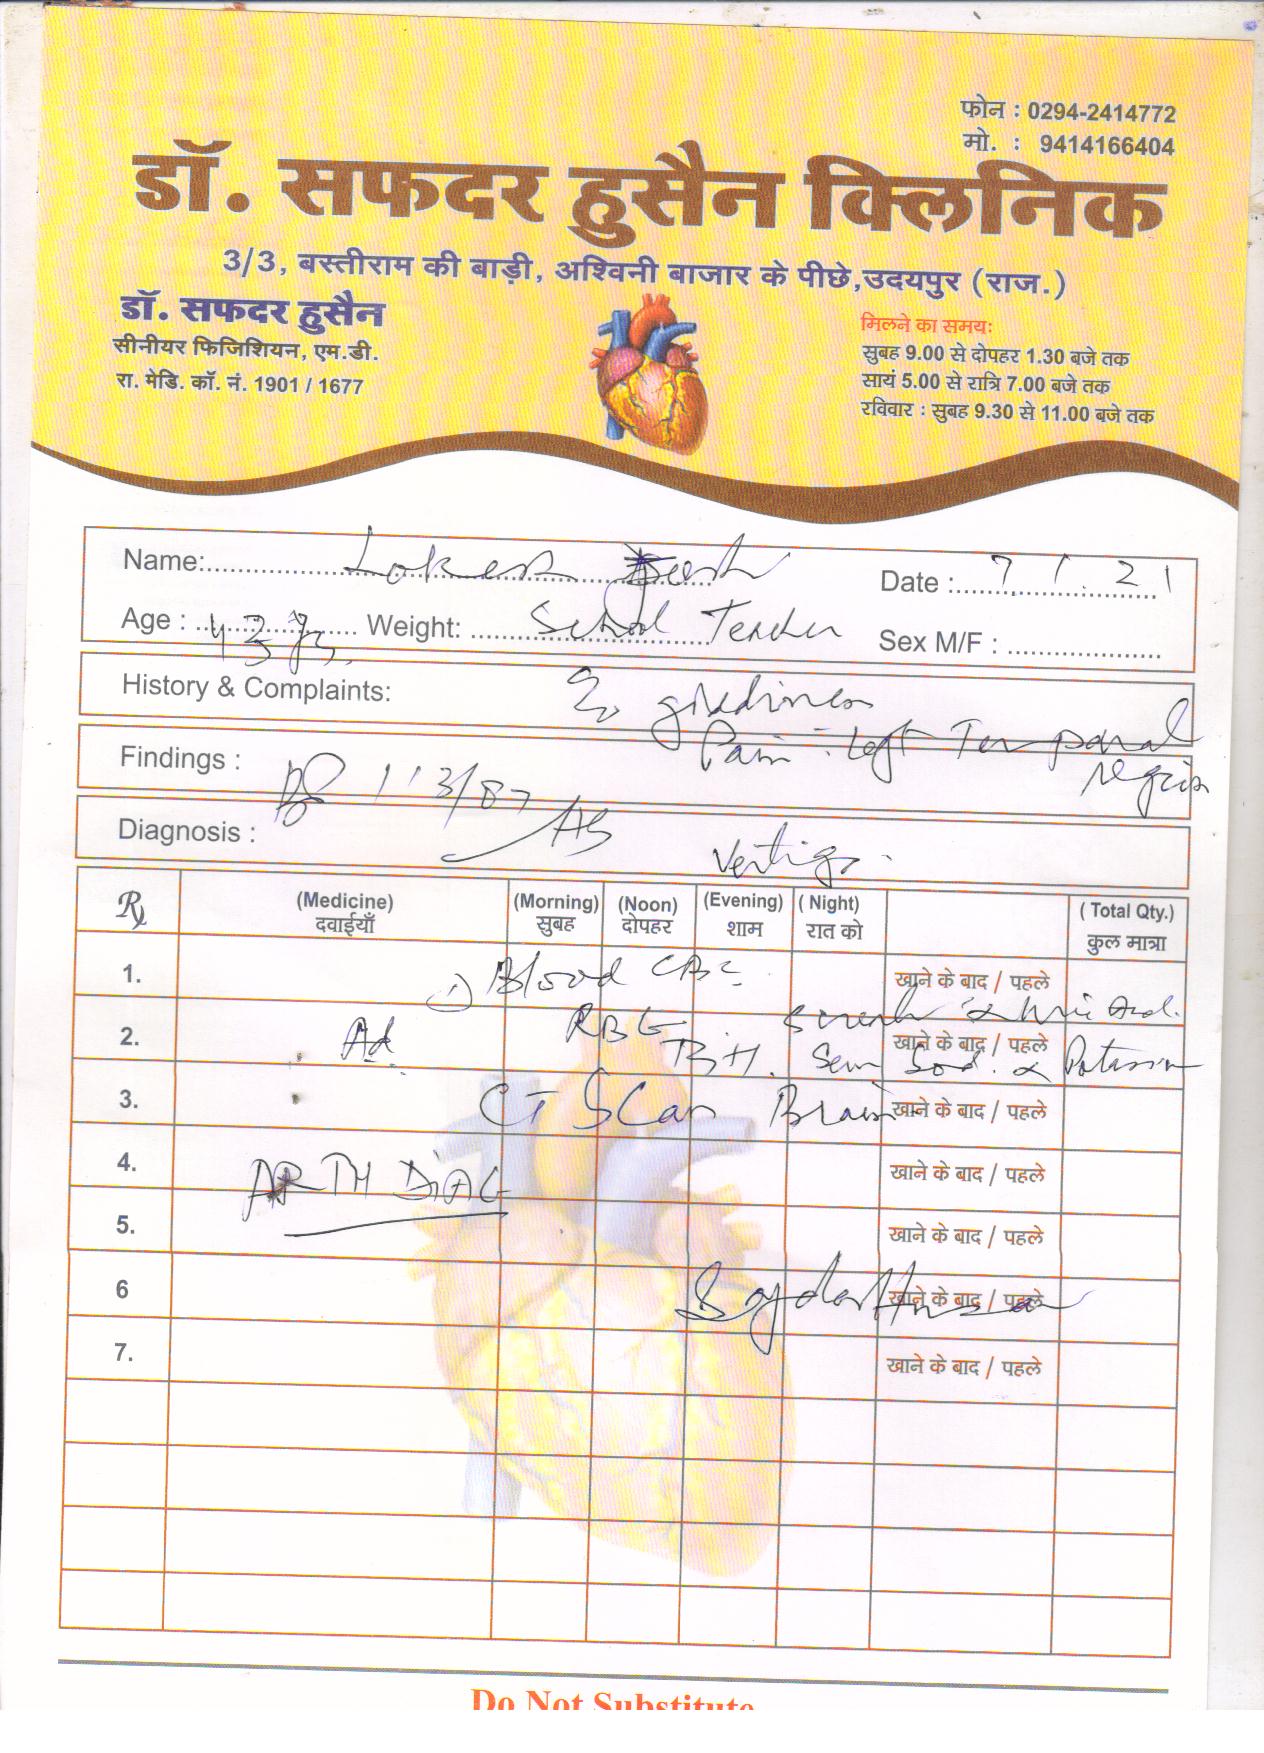 फोन : 0294-2414772
मो. : 9414166404
डॉ. सफदर हुसैन क्लिनिक
3/3, बस्तीराम की बाड़ी, अश्विनी बाजार के पीछे,उदयपुर (राज.)
डॉ. सफदर हुसैन
सीनीयर फिजिशियन, एम.डी.
रा. मेडि. कॉ. नं. 1901 / 1677
मिलने का समयः
सुबह 9.00 से दोपहर 1.30 बजे तक
सायं 5.00 से रात्रि 7.00 बजे तक
रविवार : सुबह 9.30 से 11.00 बजे तक
Name: Lokesh
Date : 7 1. 21
Age : 43 yrs. Weight: School Teacher Sex M/F :
History & Complaints: giddiness
Pain : Left Temporal
region
Findings : BP 113/87
Diagnosis : Vertigo.
Rx (Medicine) (Morning) (Noon) (Evening) ( Night) ( Total Qty.)
दवाईयाँ सुबह दोपहर शाम रात को कुल मात्रा
1. 1) Blood CBC खाने के बाद / पहले
2. Ad RBG खाने के बाद / पहले
Uric Acid.
Potassium
3. CT SCan Brain खाने के बाद / पहले
4. ARTH DiAG खाने के बाद / पहले
5. खाने के बाद / पहले
6 खाने के बाद / पहले
7. खाने के बाद / पहले
Do Not Substitute